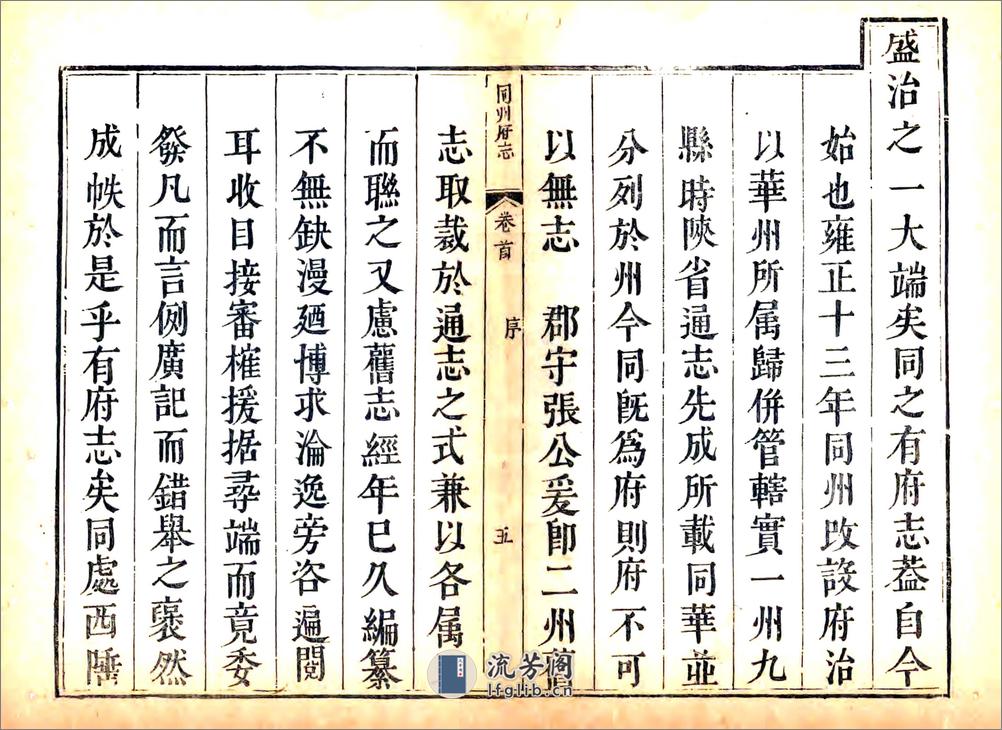 盛治之一大端矣同之有府志葢自今
始也雍正十三年同州改設府治
以華州所属歸併管轄實一州九
縣時陝省通志先成所載同華並
分列於州今同旣爲府則府不可
以無志 郡守張公爰卽二州
同州府志 卷首 序 五
志取裁於通志之式兼以各属
而聯之又慮舊志經年巳久編纂
不無缺漫廼博求淪逸旁咨遍閱
耳收目接審榷援据尋端而竟委
發凡而言例廣記而錯舉之裒然
成帙於是乎有府志矣同處西陲
流芳阁
lfglib.cn